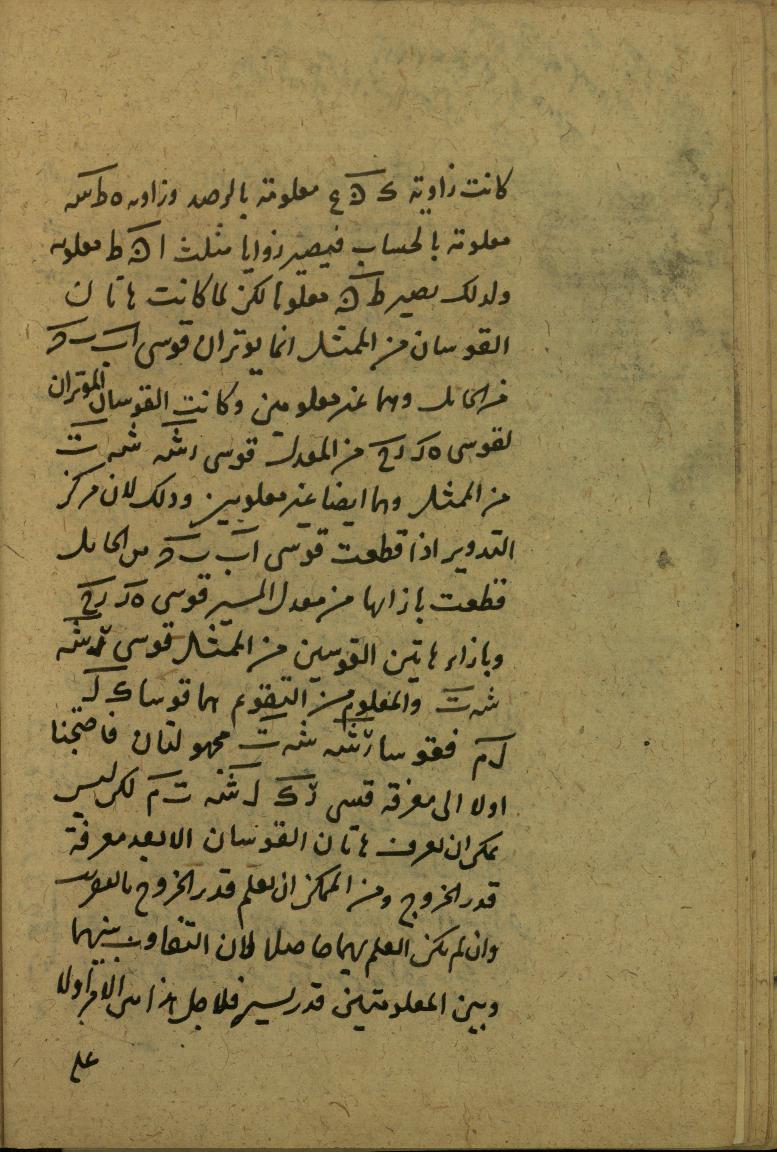 كانت زاوية ك ن ع معلومة بالرصد وزاويه ه ط س
معلومة بالحساب فيصير زوايا مثلث ا ن ط معلومه
ولذلك يصير ط ن معلوما لكن لما كانت هاتان
القوسان من الممثل انما يوتران قوسى اب ب
من الحامل وهما غير معلومين وكانت القوسان الموتران
لقوسى من المعدل قوسى رش ش ت
من الممثل وهما ايضا غير معلومين وذلك لان مركز
التدوير اذا قطعت قوسى اب ب من الحامل
قطعت بازائها من معدل المسير قوسى
وبازاء هاتين القوسين من الممثل قوسى رش
ش ت والمعلوم من التقويم هما قوسا ك ل
ل م فقوسا رش ش ت مجهولتان فاحتجنا
اولا الى معرفة قسى ر ك ل ش ت م لكن ليس
يمكن ان يعرف هاتان القوسان الا بعد معرفة
قدر الخروج ومن الممكن ان يعلم قدر الخروج بالتقريب
وان لم يكن العلم بهما حاصلا لان التفاوت بينهما
وبين المعلومتين قدر يسير فلاجل هذا من الامر اولا
على